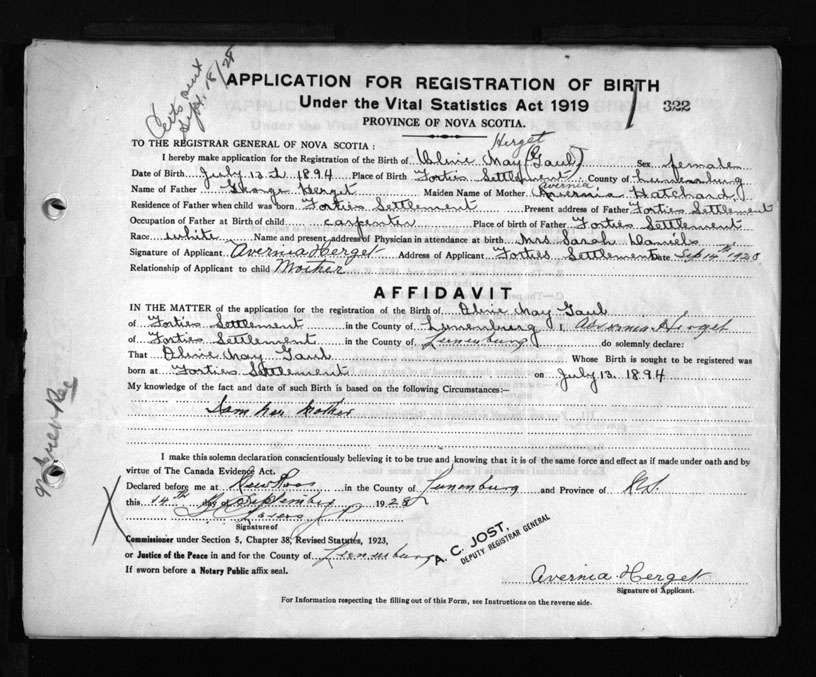 Certs sent
Sept. 18/28
APPLICATION FOR REGISTRATION OF BIRTH
Under the Vital Statistics Act 1919
322
PROVINCE OF NOVA SCOTIA.
TO THE REGISTRAR GENERAL OF NOVA SCOTIA:
Herget
I hereby make application for the Registration of the Birth of Olive May (Gaul) Sex female
Date of Birth July 13 1894 Place of Birth Forties Settlement County of Lunenburg
Avernia
Name of Father George Herget Maiden Name of Mother Avernia Hatchard
Residence of Father when child was born Forties Settlement Present address of Father Forties Settlement
Occupation of Father at Birth of child carpenter Place of birth of Father Forties Settlement
Race white Name and present address of Physician in attendance at birth Mrs Sarah Daniels
Signature of Applicant Avernia Herget Address of Applicant Forties Settlement Date Sep 14th 1928
Relationship of Applicant to child Mother
AFFIDAVIT
IN THE MATTER of the application for the registration of the Birth of Olive May Gaul
of Forties Settlement in the County of Lunenburg I, Avernia Herget
of Forties Settlement in the County of Lunenburg do solemnly declare:
That Olive May Gaul Whose Birth is sought to be registered was
born at Forties Settlement on July 13 1894
My knowledge of the fact and date of such Birth is based on the following Circumstances:—
I am her Mother
I make this solemn declaration conscientiously believing it to be true and knowing that it is of the same force and effect as if made under oath and by
virtue of The Canada Evidence Act.
Declared before me at New Ross in the County of Lunenburg and Province of N.S.
this 14th day of September 1928
Signature of
Commissioner under Section 5, Chapter 38, Revised Statutes, 1923,
or Justice of the Peace in and for the County of Lunenburg
If sworn before a Notary Public affix seal.
A. C. JOST,
DEPUTY REGISTRAR GENERAL
Avernia Herget
Signature of Applicant.
For Information respecting the filling out of this Form, see Instructions on the reverse side.